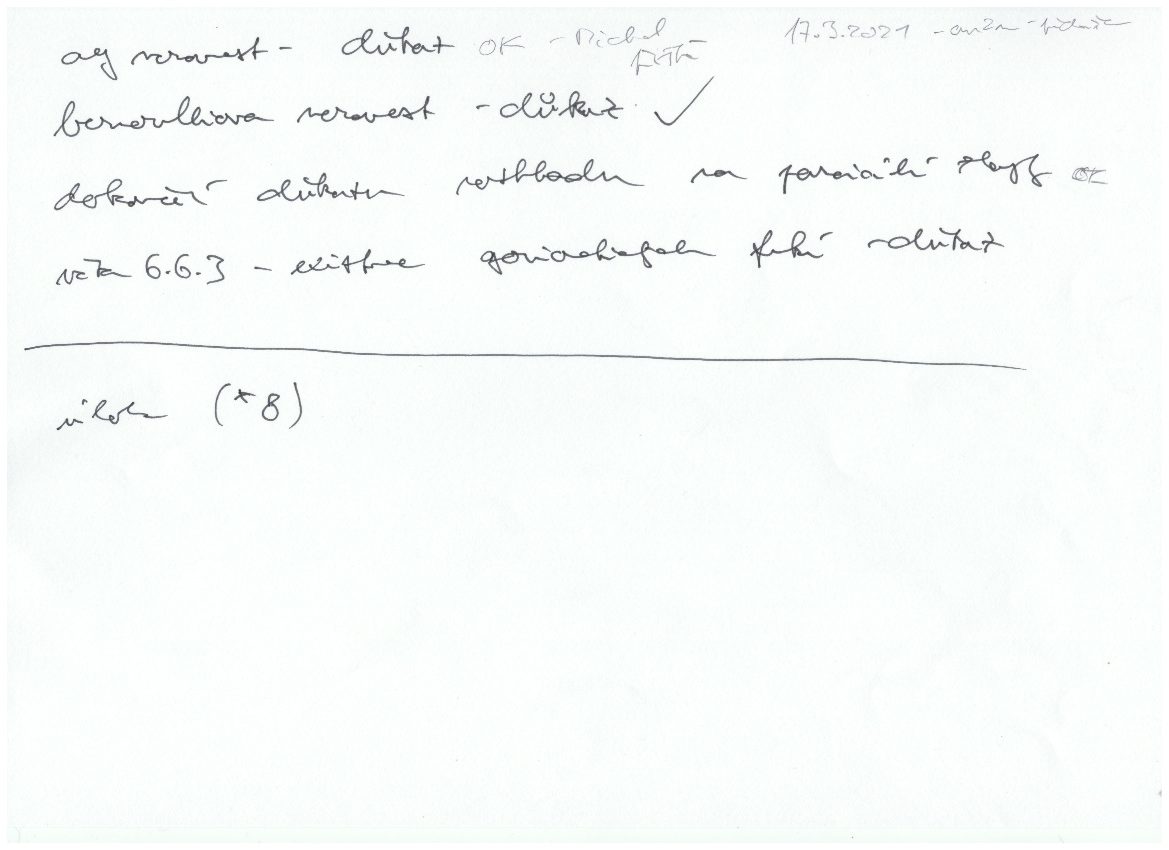 17.3.2021
ag nerovnost - důkaz OK - Michal
bernoulliova nerovnost - důkaz ✓
dokončení důkazu rozkladu na parciální zlomky OK
věta 6.6.3 - existence goniometrických funkcí - důkaz
úloha (*8)